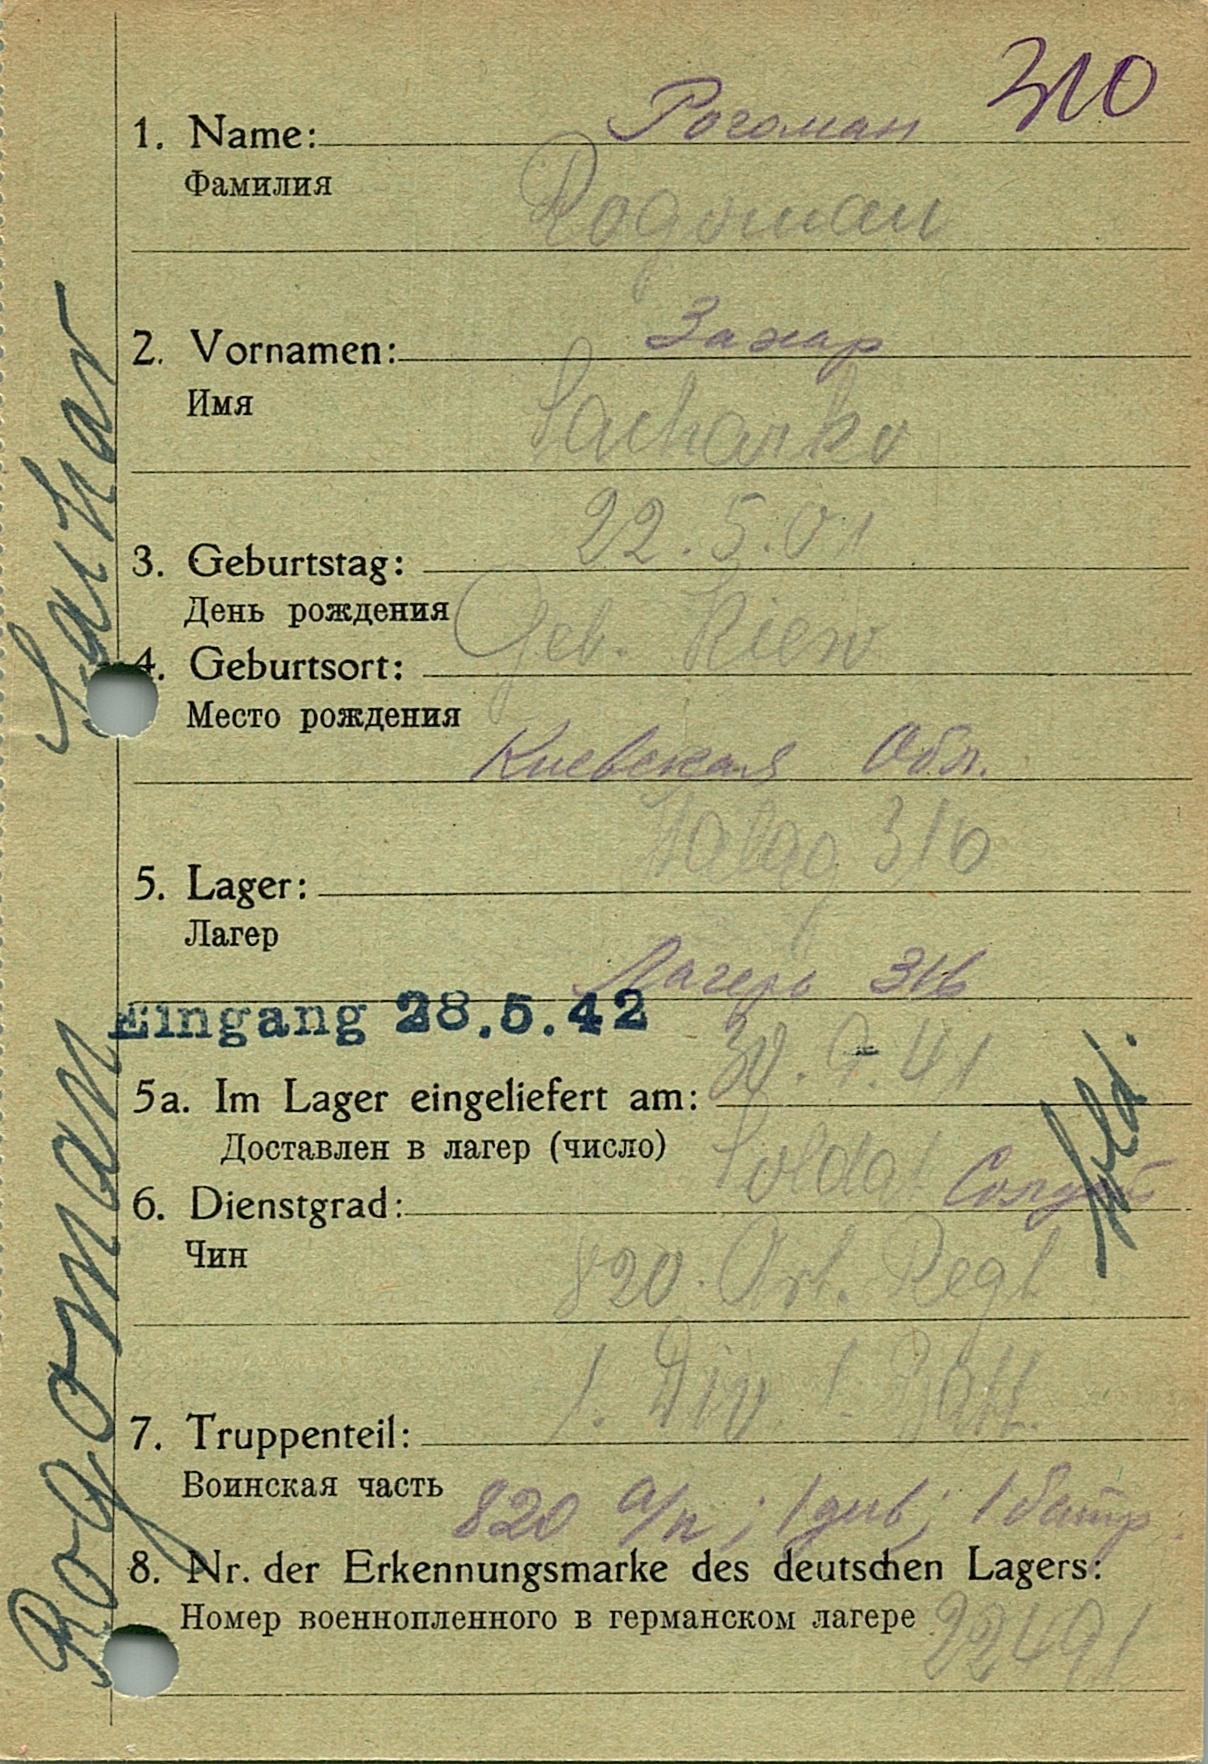 310
1. Name: Рогоман
Фамилия
Rogoman
2. Vornamen: Захар
Имя
Sacharko
22.5.01
3. Geburtstag:
День рождения
Geb. Kiew
4. Geburtsort:
Место рождения
Киевская Обл.
Stalag 316
5. Lager:
Лагер
Лагерь 316
Eingang 28.5.42
30.9.41
5a. Im Lager eingeliefert am:
Доставлен в лагер (число)
Soldat Солдат
6. Dienstgrad:
Чин
820. Art. Regt
1. Div 1. Batt.
7. Truppenteil:
Воинская часть
820 а/п; 1 див; 1 батр.
8. Nr. der Erkennungsmarke des deutschen Lagers:
Номер военнопленного в германском лагере
22491
Rogoman Sachar
Sold.